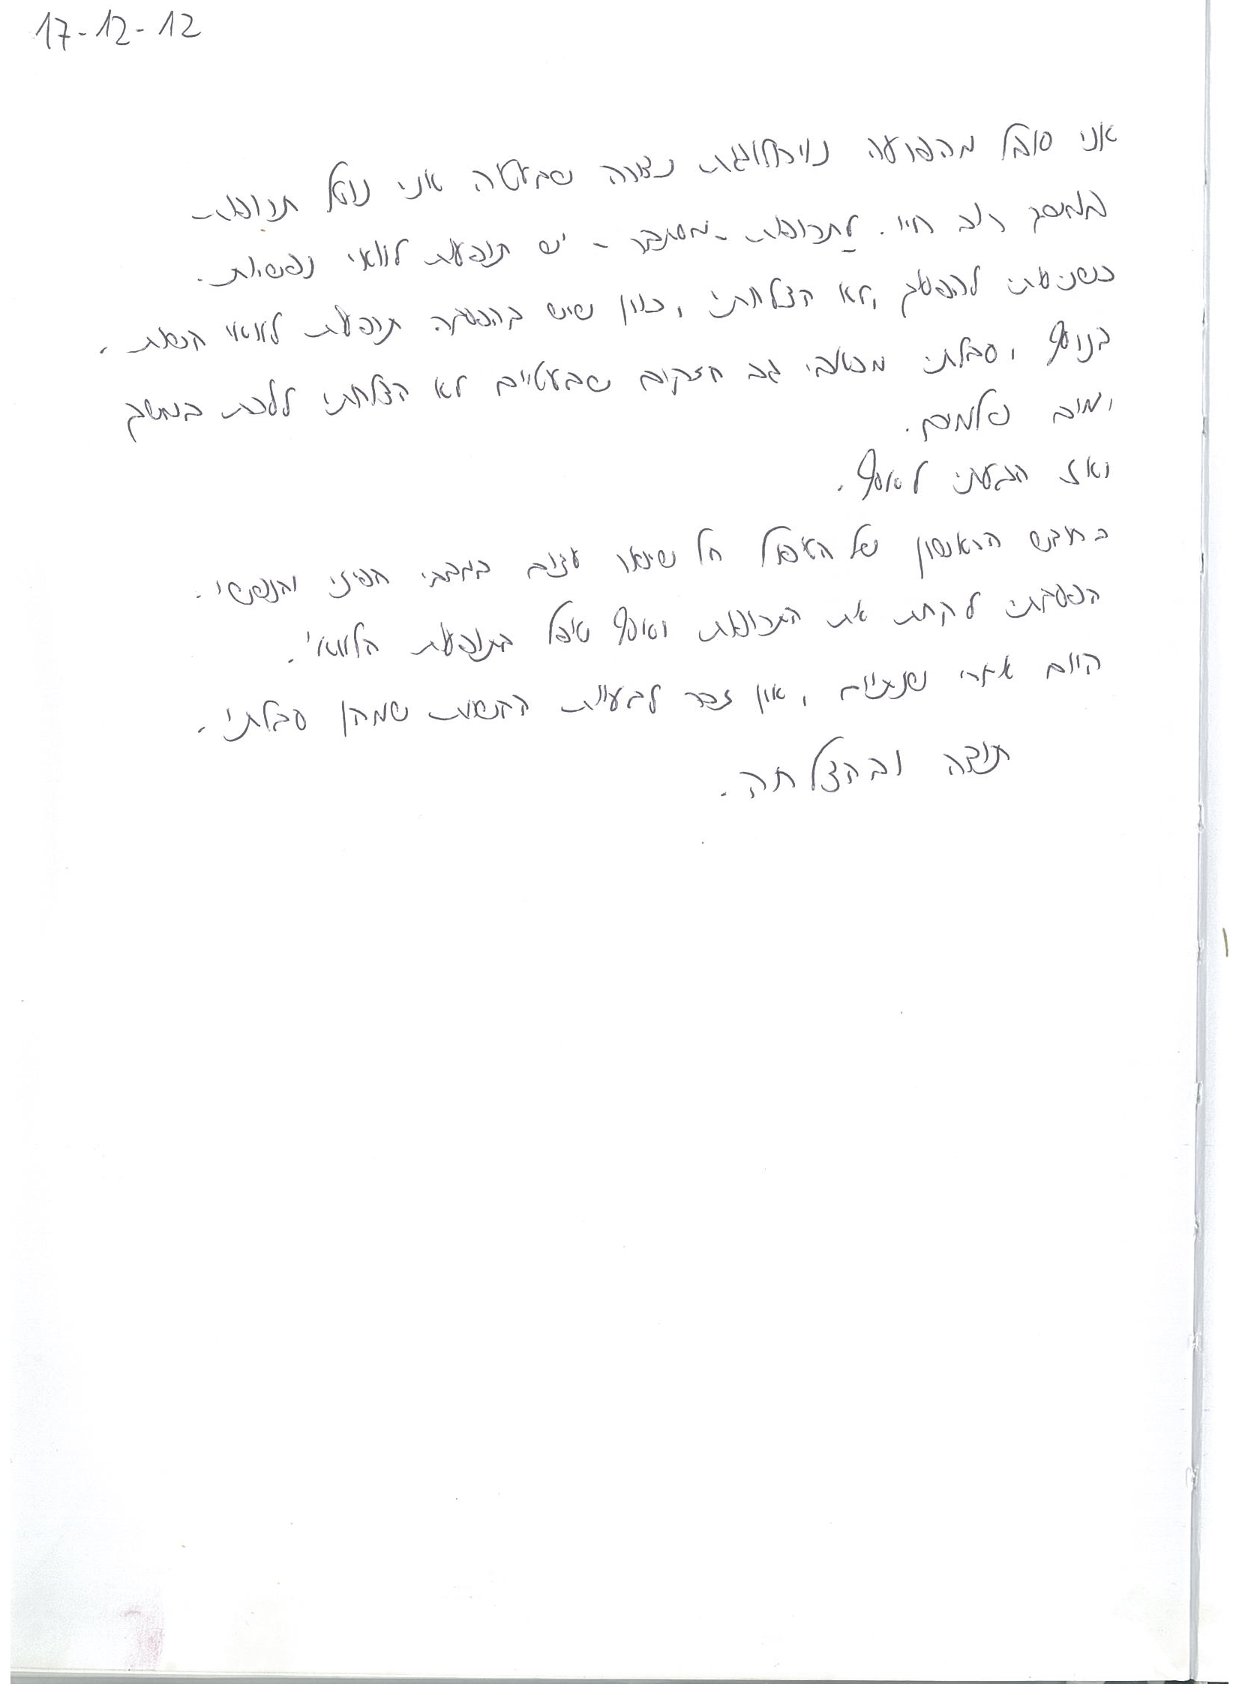 17-12-12
אני סובל מהפרעה נוירולוגית נדירה שבעטיה אני נוטל תרופות
במשך רוב חיי. לתרופות - מסתבר - יש תופעות לוואי נפשיות.
כשניסיתי להפסיק, לא הצלחתי, כיוון שיש בהפסקה תופעות לוואי קשות.
בנוסף, סבלתי מכאבי גב חזקים שבעטיים לא הצלחתי ללכת במשך
ימים שלמים.
ואז הגעתי לאסף.
בחודש הראשון של הטיפול חל שינוי עצום במצבי הפיזי והנפשי.
הפסקתי לקחת את התרופות ואסף טיפל בתופעות הלוואי.
היום אחרי שנתיים, אין זכר לבעיות הקשות שמהן סבלתי.
תודה ובהצלחה.